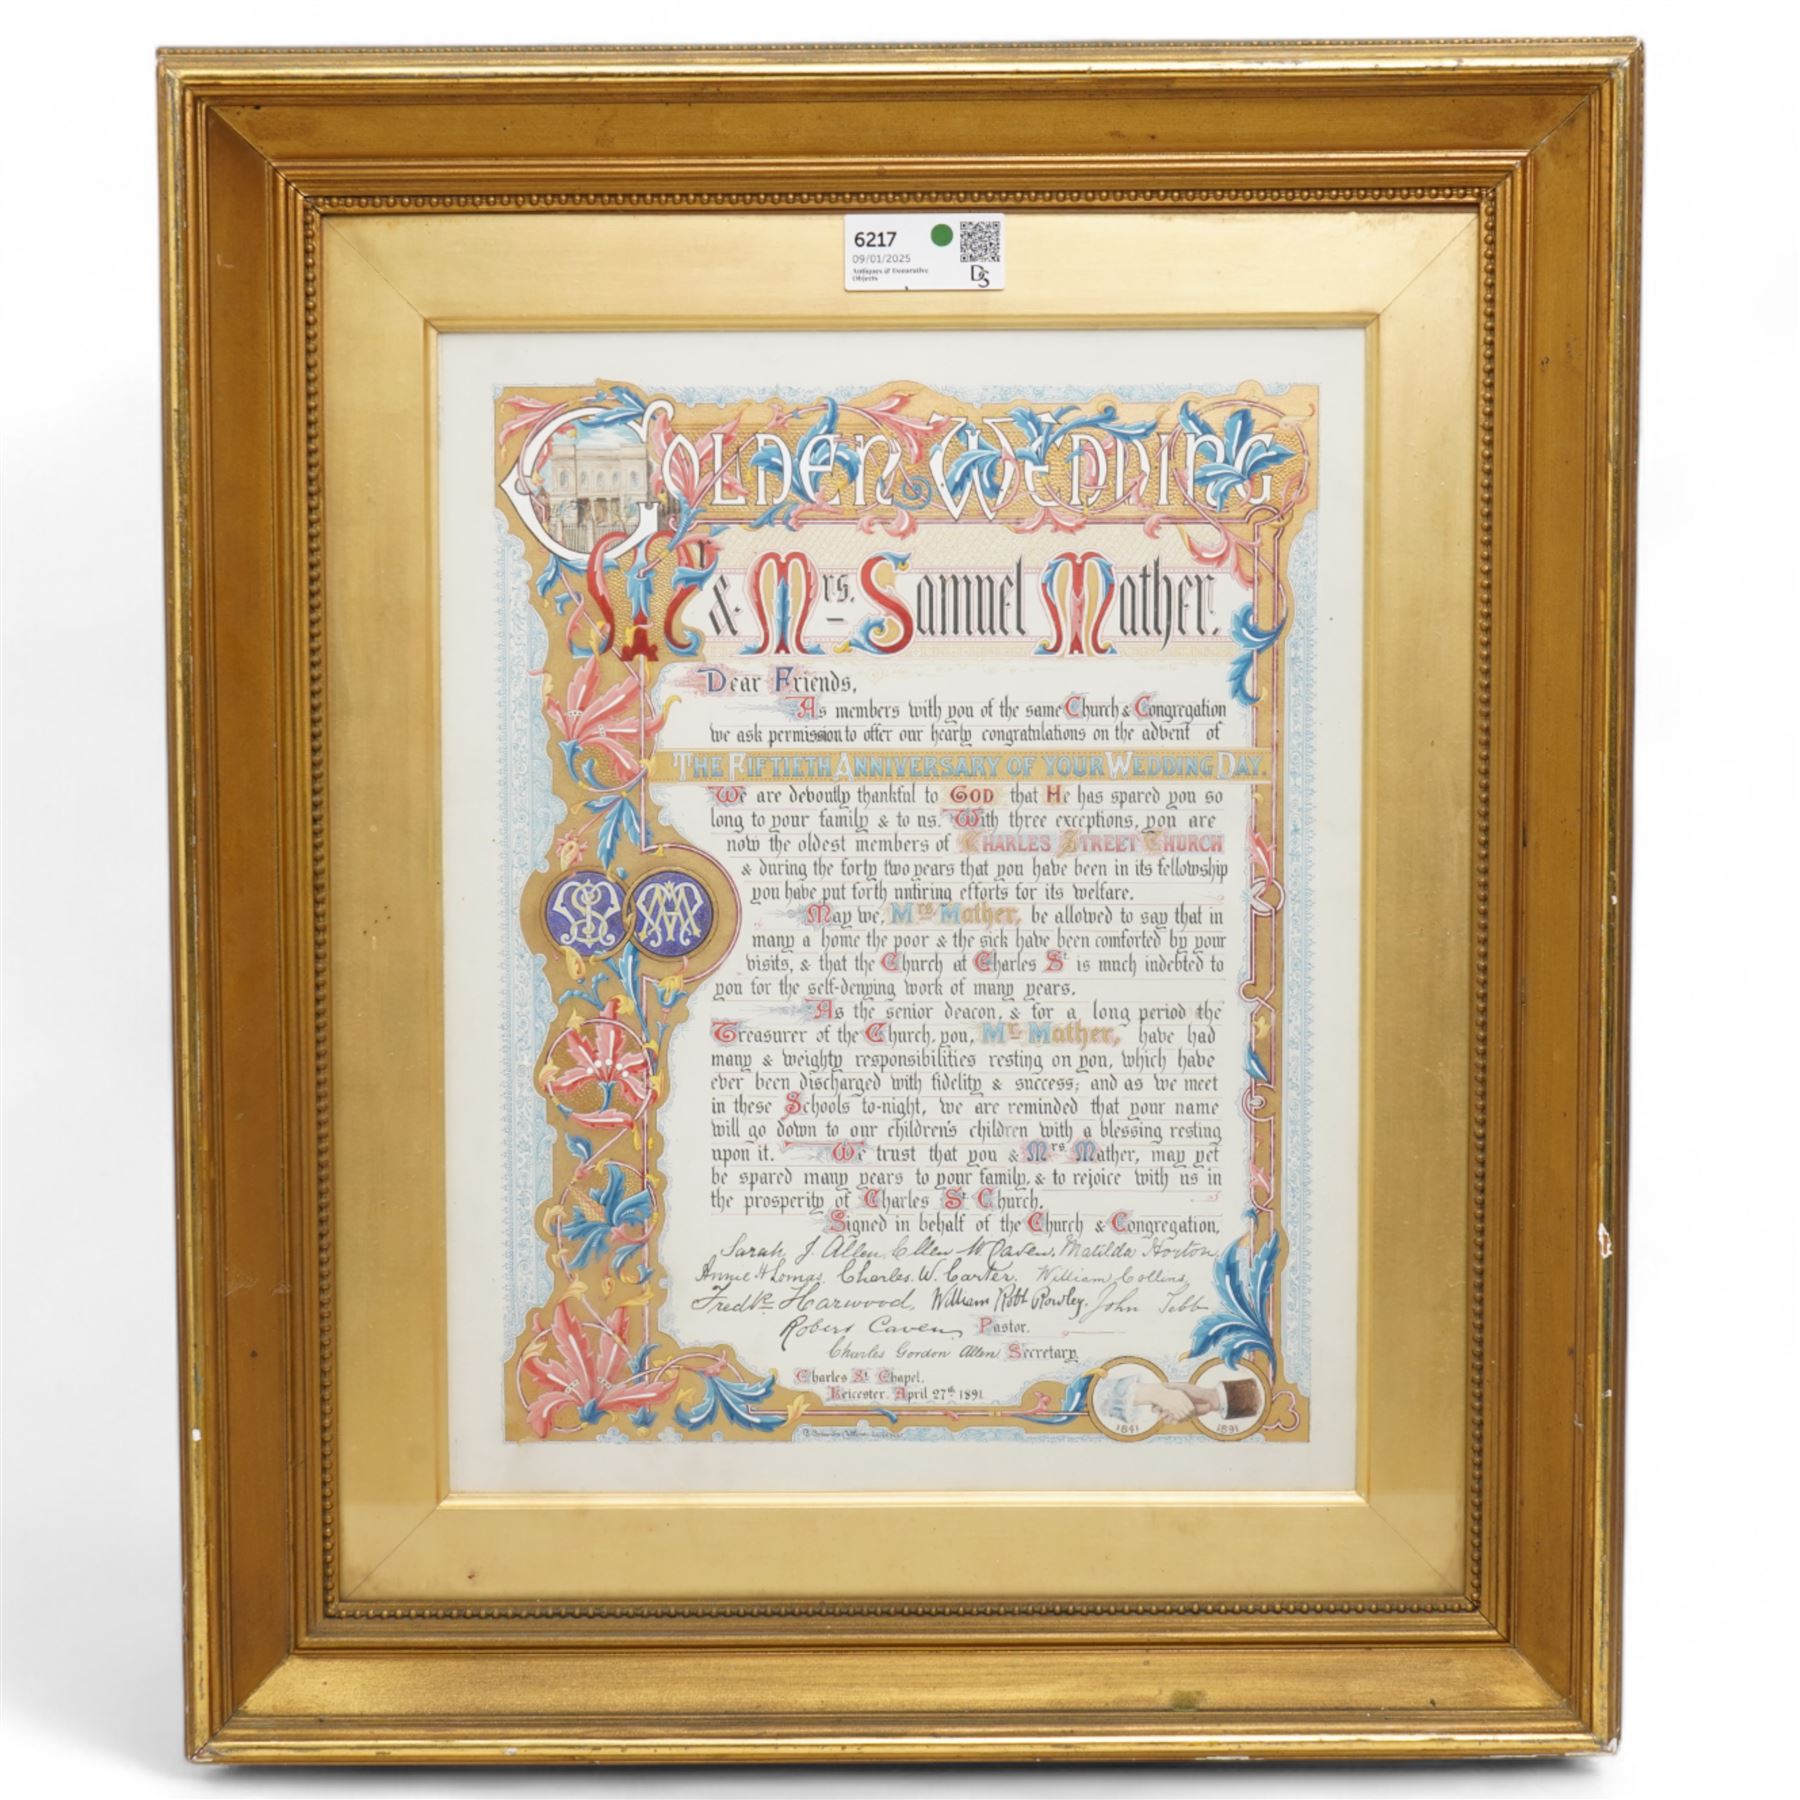 6217
09/01/2025
Antiques & Decorative
Objects
DS
Golden Wedding
Mr & Mrs. Samuel Mather.
Dear Friends,
As members with you of the same Church & Congregation
we ask permission to offer our hearty congratulations on the advent of
THE FIFTIETH ANNIVERSARY OF YOUR WEDDING DAY.
We are devoutly thankful to GOD that He has spared you so
long to your family & to us. With three exceptions, you are
now the oldest members of CHARLES STREET CHURCH
& during the forty two years that you have been in its fellowship
you have put forth untiring efforts for its welfare.
May we, Mrs. Mather, be allowed to say that in
many a home the poor & the sick have been comforted by your
visits, & that the Church at Charles St. is much indebted to
you for the self-denying work of many years.
As the senior deacon, & for a long period the
Treasurer of the Church, you, Mr. Mather, have had
many & weighty responsibilities resting on you, which have
ever been discharged with fidelity & success; and as we meet
in these Schools to-night, we are reminded that your name
will go down to our children's children with a blessing resting
upon it. We trust that you & Mrs. Mather, may yet
be spared many years to your family, & to rejoice with us in
the prosperity of Charles St. Church.
Signed in behalf of the Church & Congregation,
Sarah J. Allen, Ellen W Caven, Matilda Horton,
Annie H Lomas, Charles. W. Carter. William Collins,
Fredk. Harwood, William Robt Rowley, John Tebb
Robert Caven, Pastor.
Charles Gordon Allen Secretary,
Charles St. Chapel,
Leicester. April 27th 1891
1841 1891